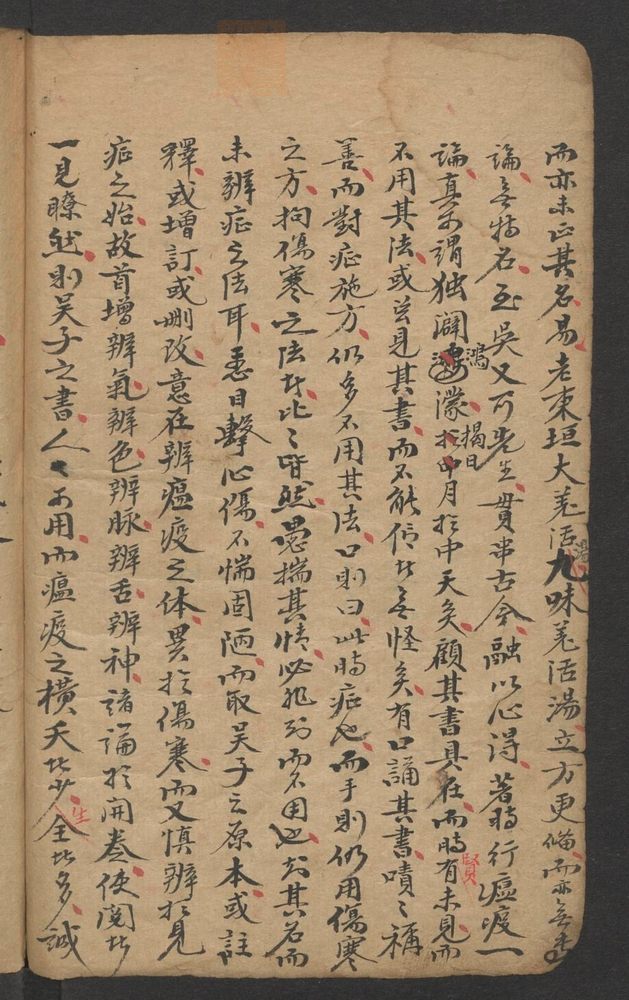 而亦未正其名易老東垣大羌活湯九味羌活湯立方更備而亦無專
論無特名至吳又可先生貫串古今融以心得著時行瘟疫一
論真可謂独闢鴻濛揭日月於中天矣顧其書具在而時賢有未見而
不用其法或並見其書而不能信者無怪矣有口誦其書嘖〻稱
善而對症施方仍多不用其法口則曰此時症也而手則仍用傷寒
之方拘傷寒之法者比〻皆然愚揣其情必非知而不用也知其名而
未辨症之法耳悉目擊心傷不惴固陋而取吳子之原本或註
釋或增訂或刪改意在辨瘟疫之体異於傷寒而又慎辨於見
症之始故首增辨氣辨色辨脉辨舌辨神諸論於開卷使閱者
一見瞭然則吳子之書人〻可用而瘟疫之橫夭者少生全者多誠